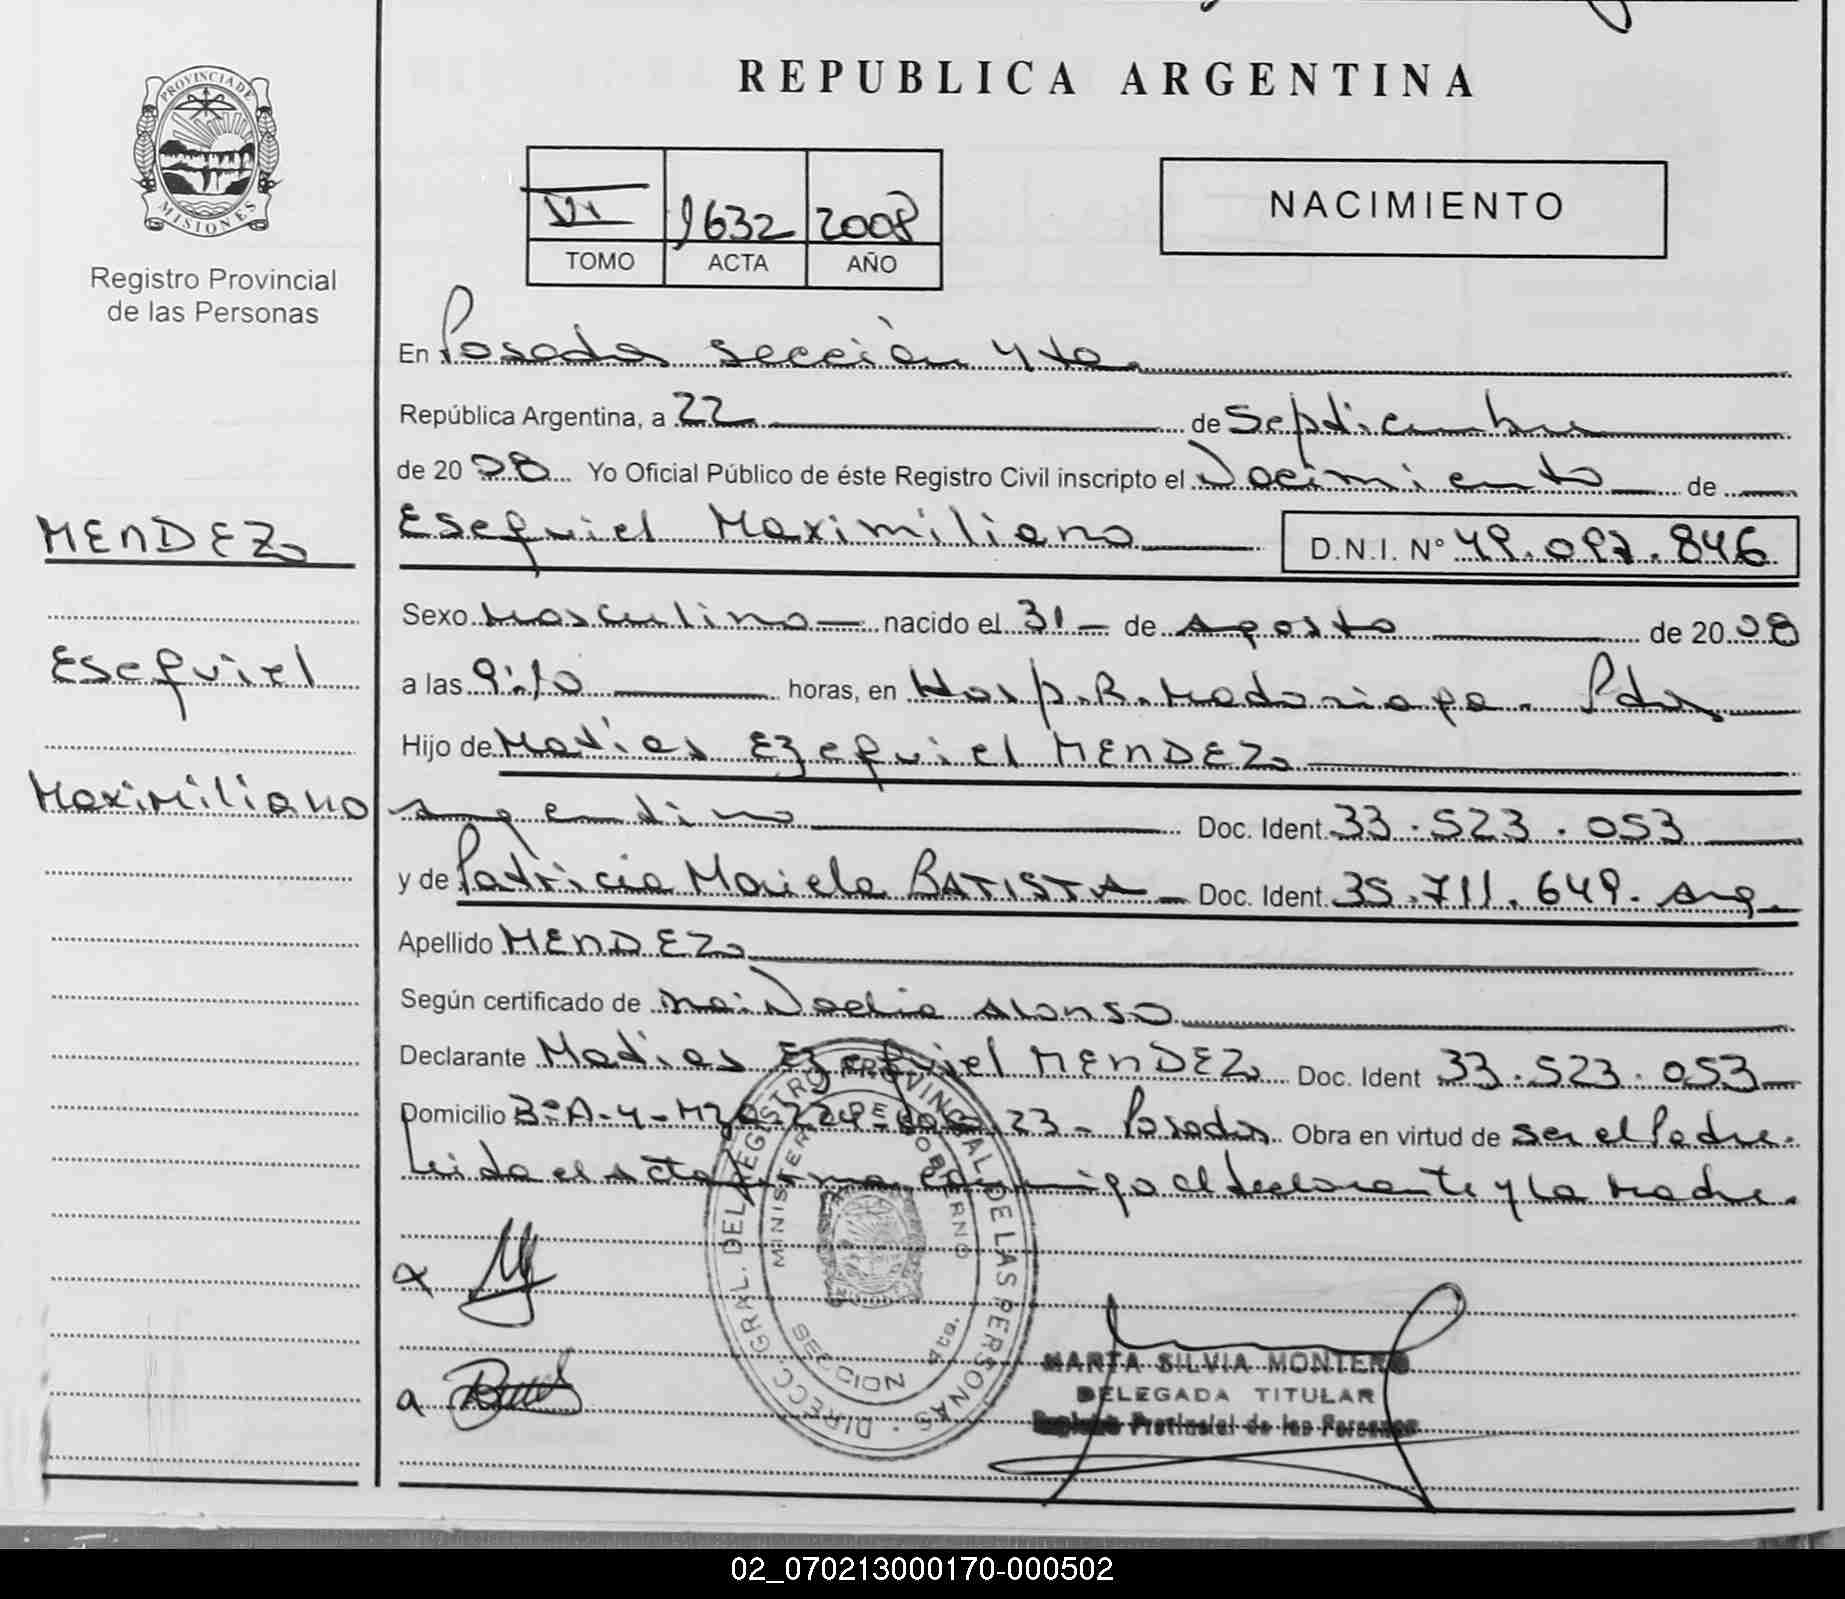 REPUBLICA ARGENTINA
PROVINCIA DE MISIONES
Registro Provincial
de las Personas
VI 1632 2008
TOMO ACTA AÑO
NACIMIENTO
En Posadas sección 4ta
República Argentina, a 22 de Septiembre
de 2008 Yo Oficial Público de éste Registro Civil inscripto el Nacimiento de
MENDEZ
Esequiel
Maximiliano
Esequiel Maximiliano D.N.I. N° 49.097.846
Sexo Masculino nacido el 31 de Agosto de 2008
a las 9:10 horas, en Hosp. R. Madariaga. Pdas
Hijo de Matias Ezequiel MENDEZ
Argentino Doc. Ident. 33.523.053
y de Patricia Mariela BATISTA Doc. Ident. 35.711.649. Arg.
Apellido MENDEZ
Según certificado de Noelia Alonso
Declarante Matias Ezequiel MENDEZ Doc. Ident 33.523.053
Domicilio B° A-4-Mza 224- casa 23- Posadas Obra en virtud de ser el Padre.
Leida el acta firma conmigo el declarante y la Madre.
DIRECC. GRAL. DEL REGISTRO PROVINCIAL DE LAS PERSONAS
MINISTERIO DE GOBIERNO
MARTA SILVIA MONTERO
DELEGADA TITULAR
Registro Provincial de las Personas
02_070213000170-000502